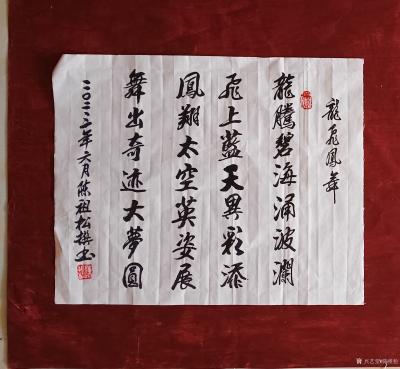 龍飛鳳舞
龍騰碧海涌波瀾
飛上藍天異彩添
鳳翔太空英姿展
舞出奇迹大夢圓
二〇二二年六月陈祖松撰书